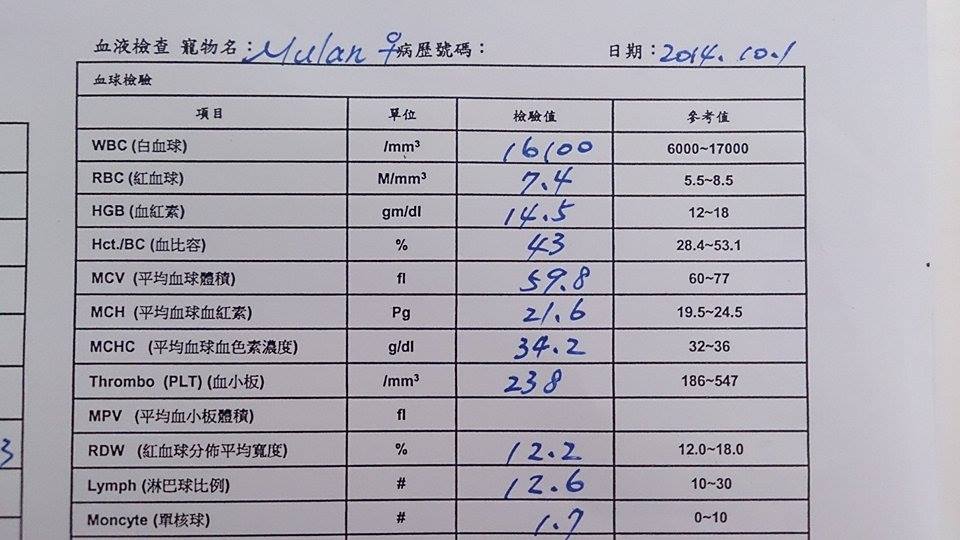 血液檢查 寵物名：Mulan ♀ 病歷號碼： 日期：2014.10.1
血球檢驗
項目 單位 檢驗值 參考值
WBC (白血球) /mm³ 16100 6000~17000
RBC (紅血球) M/mm³ 7.4 5.5~8.5
HGB (血紅素) gm/dl 14.5 12~18
Hct./BC (血比容) % 43 28.4~53.1
MCV (平均血球體積) fl 59.8 60~77
MCH (平均血球血紅素) Pg 21.6 19.5~24.5
MCHC (平均血球血色素濃度) g/dl 34.2 32~36
Thrombo (PLT) (血小板) /mm³ 238 186~547
MPV (平均血小板體積) fl
3 RDW (紅血球分佈平均寬度) % 12.2 12.0~18.0
Lymph (淋巴球比例) # 12.6 10~30
Moncyte (單核球) # 1.7 0~10